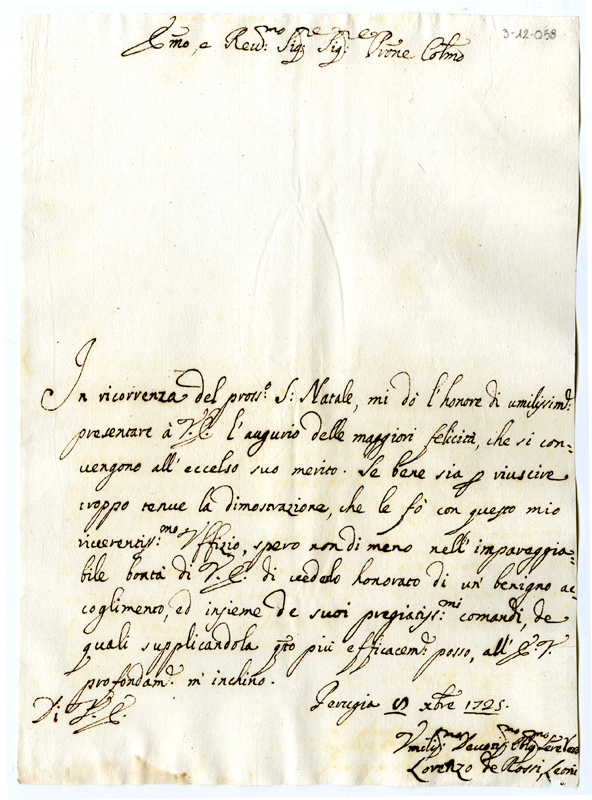 3-12-058
Emo, e Revd.mo Sig.re Sig.re Prone Colmo
In ricorrenza del pross.o S: Natale, mi dó l'honore di umilissim.e
presentare à V.E. l'augurio delle maggiori felicità, che si con-
vengono all'eccelso suo merito. Se bene sia p riuscire
troppo tenue la dimostrazione, che le fò con questo mio
riverentiss:mo Uffizio, spero non di meno nell'impareggia-
bile bontà di V.E. di vederlo honorato di un'benigno ac-
coglimento, ed insieme de suoi pregiatiss:mi comandi, de
quali supplicandola qto più efficacem.e posso, all'E.V.
profondam.e m'inchino.
Perugia xbre 1725.
Di V.E.
Umiliss.mo Devotiss.mo Oblg.mo
Lorenzo de Rossi Leoni